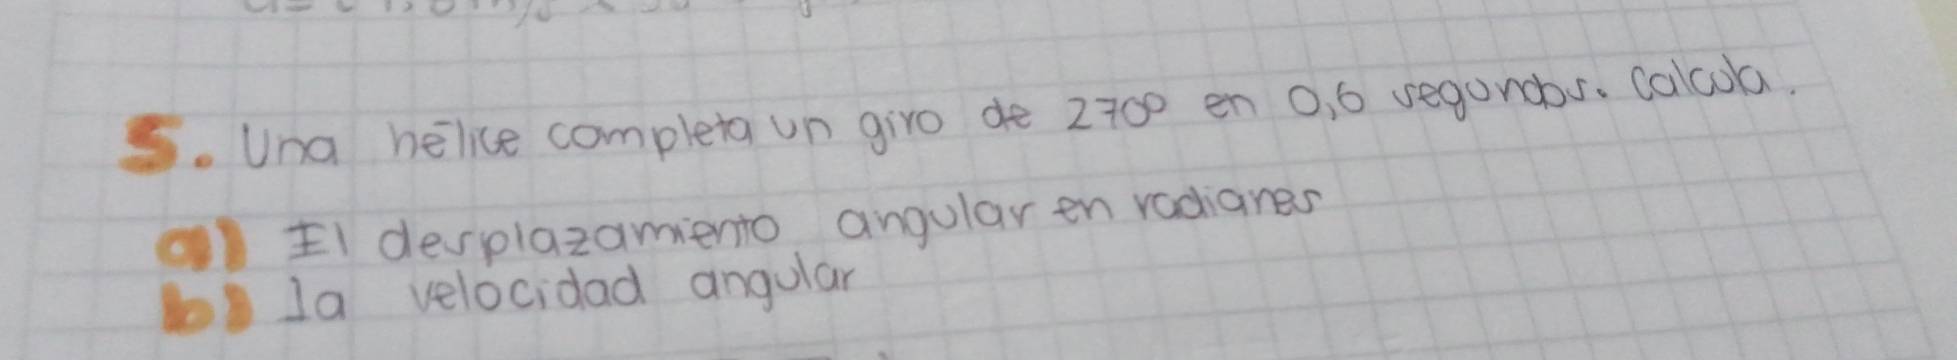 5. Una hélice completa un giro de 270° en 0,6 segundos. Calcula.
a) El desplazamiento angular en radianes
b) la velocidad angular